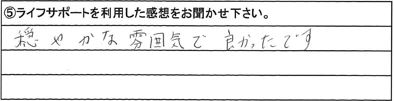 ⑤ライフサポートを利用した感想をお聞かせ下さい。
穏やかな雰囲気で良かったです